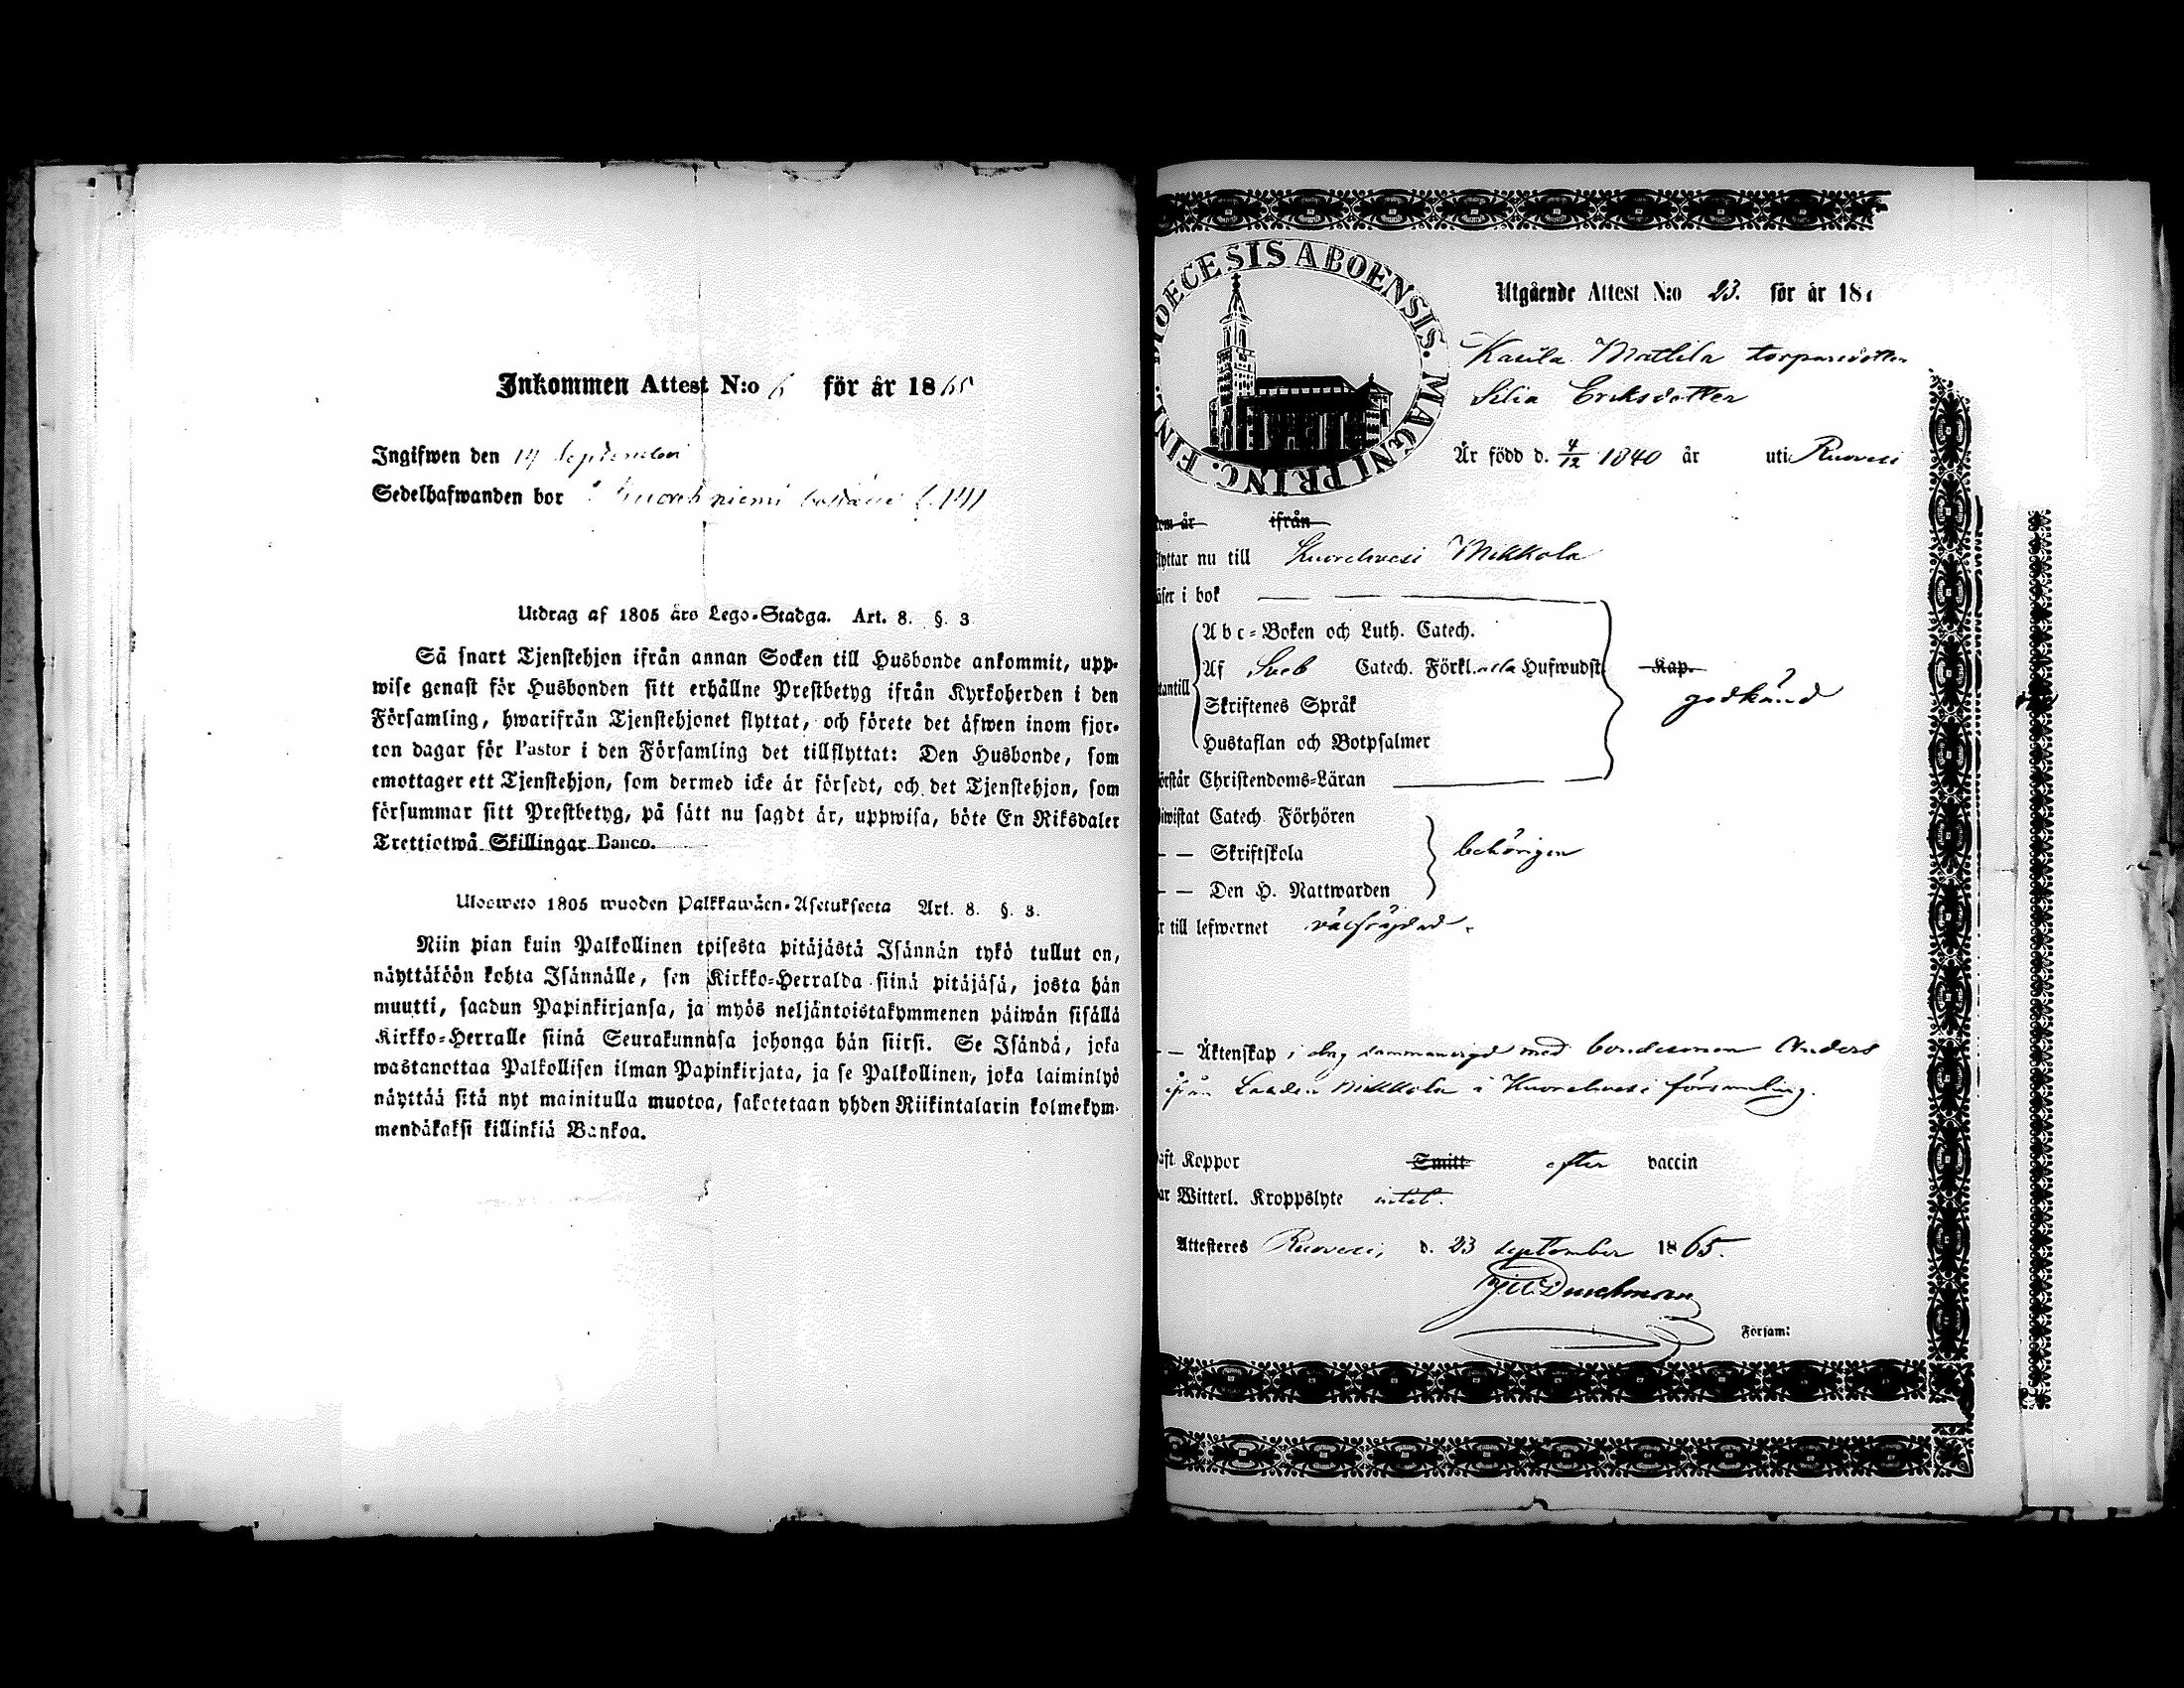 Inkommen Attest N:o 6 för år 1865
Ingifwen den 14 September
Sedelhafwanden bor
Utdrag af 1805 års Lego-Stadga. Art. 8. §. 3
Så snart Tjenstehjon ifrån annan Socken till Husbonde ankommit, upp-
wise genast för Husbonden sitt erhållne Prestbetyg ifrån Kyrkoherden i den
Församling, hwarifrån Tjenstehjonet flyttat, och förete det äfwen inom fjor-
ton dagar för Pastor i den Församling det tillflyttat: Den Husbonde, som
emottager ett Tjenstehjon, som dermed icke är försedt, och det Tjenstehjon, som
försummar sitt Prestbetyg, på sätt nu sagdt är, uppwisa, böte En Riksdaler
Trettiotwå Skillingar Banco.
Ulosweto 1805 wuoden Palkkawäen-Asetuksesta Art. 8. §. 3.
Niin pian kuin Palkollinen toisesta pitäjästä Isännän tykö tullut on,
näyttäköön kohta Isännälle, sen Kirkko-Herralda siinä pitäjäsä, josta hän
muutti, saadun Papinkirjansa, ja myös neljäntoistakymmenen päiwän sisällä
Kirkko-Herralle siinä Seurakunnasa johonga hän siirsi. Se Isändä, joka
wastanottaa Palkollisen ilman Papinkirjata, ja se Palkollinen, joka laiminlyö
näyttää sitä nyt mainitulla muotoa, sakotetaan yhden Riikintalarin kolmekym-
mendäkaksi killinkiä Bankoa.
DIOECESIS ABOENSIS. MAGNI PRINC. FINL.
Utgående Attest N:o 23. för år 18
Mattila torparedotter
Silia Eriksdotter
Är född d. 4/12 1840 år uti Ruovesi
dem år ifrån
flyttar nu till Kuorehvesi Mikkola
läser i bok
Abc-Boken och Luth. Catech.
utantill Af Sveb Catech. Förkl. alla Hufwudst. Kap.
godkänd
Skriftenes Språk
Hustaflan och Botpsalmer
förstår Christendoms-Läran
Biwistat Catech. Förhören
— — Skriftskola behörigen
— — Den H. Nattwarden
är till lefwernet välfrägdad.
— — Äktenskap i dag sammanvigd med bondesonen Anders
ifrån Mikkola i Kuorehvesi församling.
haft Koppor Smitt efter vaccin
har Witterl. Kroppslyte intet.
Attesteres Ruovesi, d. 23 september 1865.
Försam: